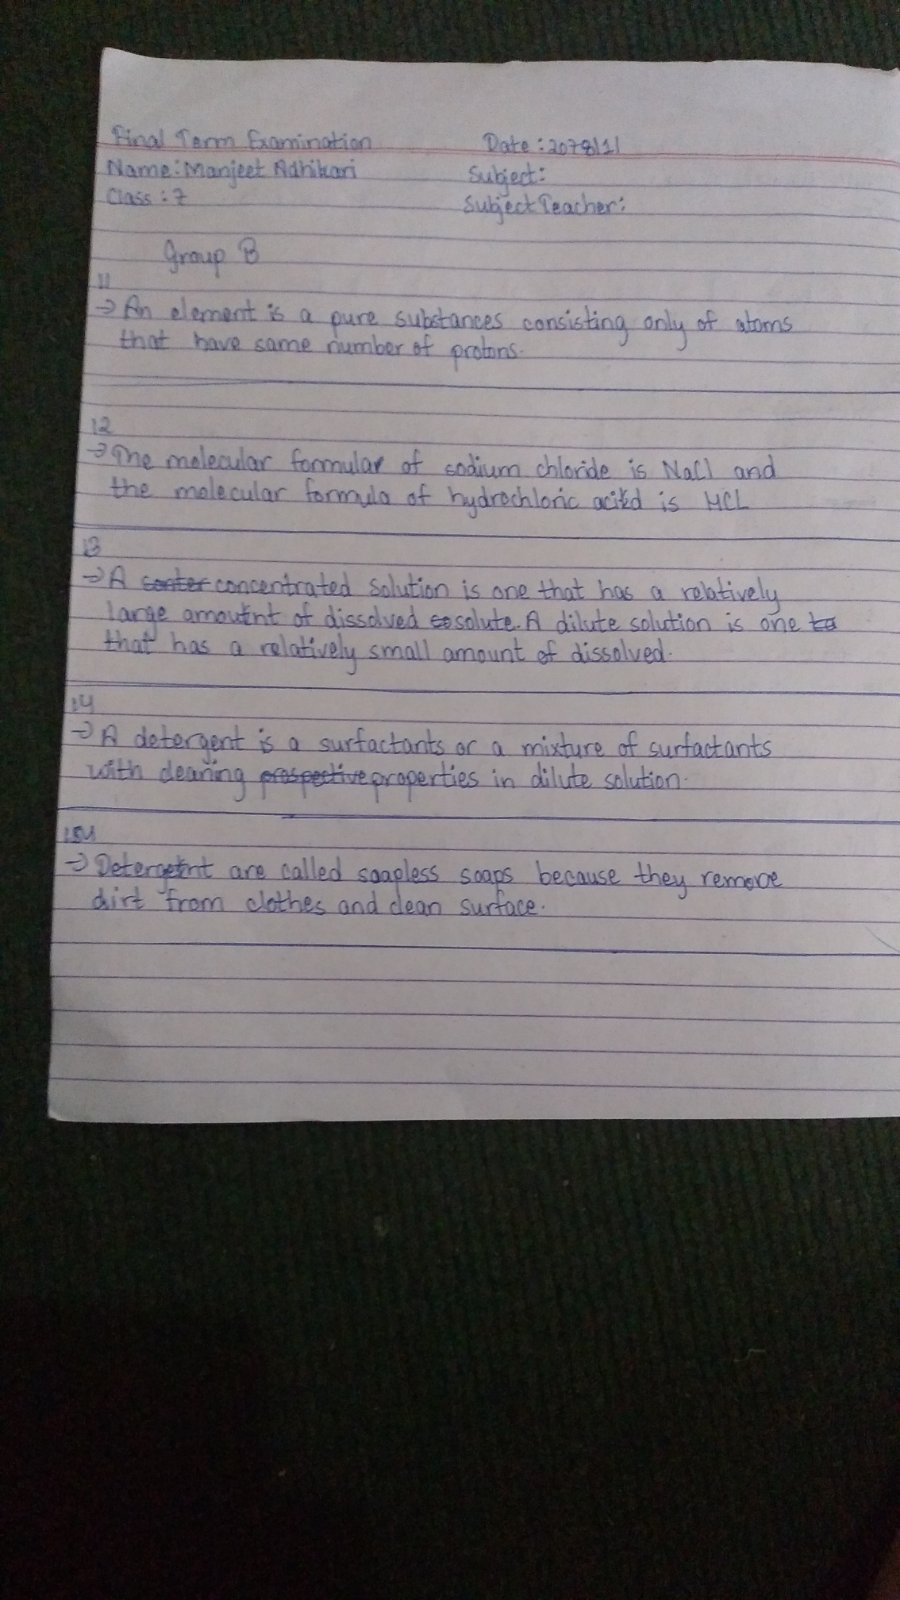 Final Term Examination Date: 2078/1/1
Name: Manjeet Adhikari Subject:
Class: 7 Subject Teacher:
Group B
11
→ An element is a pure substances consisting only of atoms
that have same number of protons.
12
→ The molecular formular of sodium chloride is NaCl and
the molecular formula of hydrochloric acid is HCL
13
→ A conter concentrated solution is one that has a relatively
large amount of dissolved so solute. A dilute solution is one ta
that has a relatively small amount of dissolved.
14
→ A detergent is a surfactants or a mixture of surfactants
with cleaning prospective properties in dilute solution.
15
→ Detergent are called soapless soaps because they remove
dirt from clothes and clean surface.